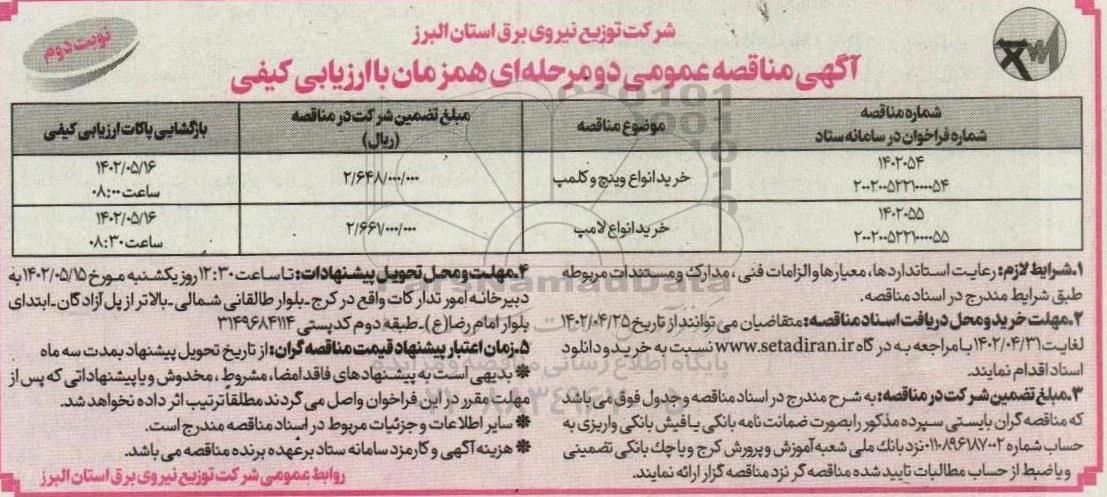 شرکت توزیع نیروی برق استان البرز
نوبت دوم
آگهی مناقصه عمومی دو مرحله‌ای همزمان با ارزیابی کیفی
شماره مناقصه
شماره فراخوان در سامانه ستاد
موضوع مناقصه
مبلغ تضمین شرکت در مناقصه
(ریال)
بازگشایی پاکات ارزیابی کیفی
۱۴۰۲۰۵۴
۲۰۰۲۰۰۵۲۲۱۰۰۰۰۵۴
خرید انواع وینچ و کلمپ
۲/۶۴۸/۰۰۰/۰۰۰
۱۴۰۲/۰۵/۱۶
ساعت ۰۸:۰۰
۱۴۰۲۰۵۵
۲۰۰۲۰۰۵۲۲۱۰۰۰۰۵۵
خرید انواع لامپ
۲/۶۶۱/۰۰۰/۰۰۰
۱۴۰۲/۰۵/۱۶
ساعت ۰۸:۳۰
۱ـ شرایط لازم: رعایت استانداردها، معیارها و الزامات فنی، مدارک و مستندات مربوطه
طبق شرایط مندرج در اسناد مناقصه.
۲ـ مهلت خرید و محل دریافت اسناد مناقصه: متقاضیان می توانند از تاریخ ۱۴۰۲/۰۴/۲۵
لغایت ۱۴۰۲/۰۴/۳۱ با مراجعه به درگاه www.setadiran.ir نسبت به خرید و دانلود
اسناد اقدام نمایند.
۳ـ مبلغ تضمین شرکت در مناقصه: به شرح مندرج در اسناد مناقصه و جدول فوق می باشد
که مناقصه گران بایستی سپرده مذکور را بصورت ضمانت نامه بانکی یا فیش بانکی واریزی به
حساب شماره ۰۱۱۰۸۹۶۱۸۷۰۰۲ نزد بانک ملی شعبه آموزش و پرورش کرج و یا چک بانکی تضمینی
و یا ضبط از حساب مطالبات تایید شده مناقصه گر نزد مناقصه گزار ارائه نمایند.
۴ـ مهلت و محل تحویل پیشنهادات: تا ساعت ۱۲:۳۰ روز یکشنبه مورخ ۱۴۰۲/۰۵/۱۵ به
دبیرخانه امور تدارکات واقع در کرج ـ بلوار طالقانی شمالی ـ بالاتر از پل آزادگان ـ ابتدای
بلوار امام رضا (ع) ـ طبقه دوم کدپستی ۳۱۴۹۶۸۴۱۱۴
۵ـ زمان اعتبار پیشنهاد قیمت مناقصه گران: از تاریخ تحویل پیشنهاد بمدت سه ماه
* بدیهی است به پیشنهادهای فاقد امضا، مشروط، مخدوش و یا پیشنهاداتی که پس از
مهلت مقرر در این فراخوان واصل می گردند مطلقا ترتیب اثر داده نخواهد شد.
* سایر اطلاعات و جزئیات مربوط در اسناد مناقصه مندرج است.
* هزینه آگهی و کارمزد سامانه ستاد بر عهده برنده مناقصه می باشد.
روابط عمومی شرکت توزیع نیروی برق استان البرز
ParsNamadData